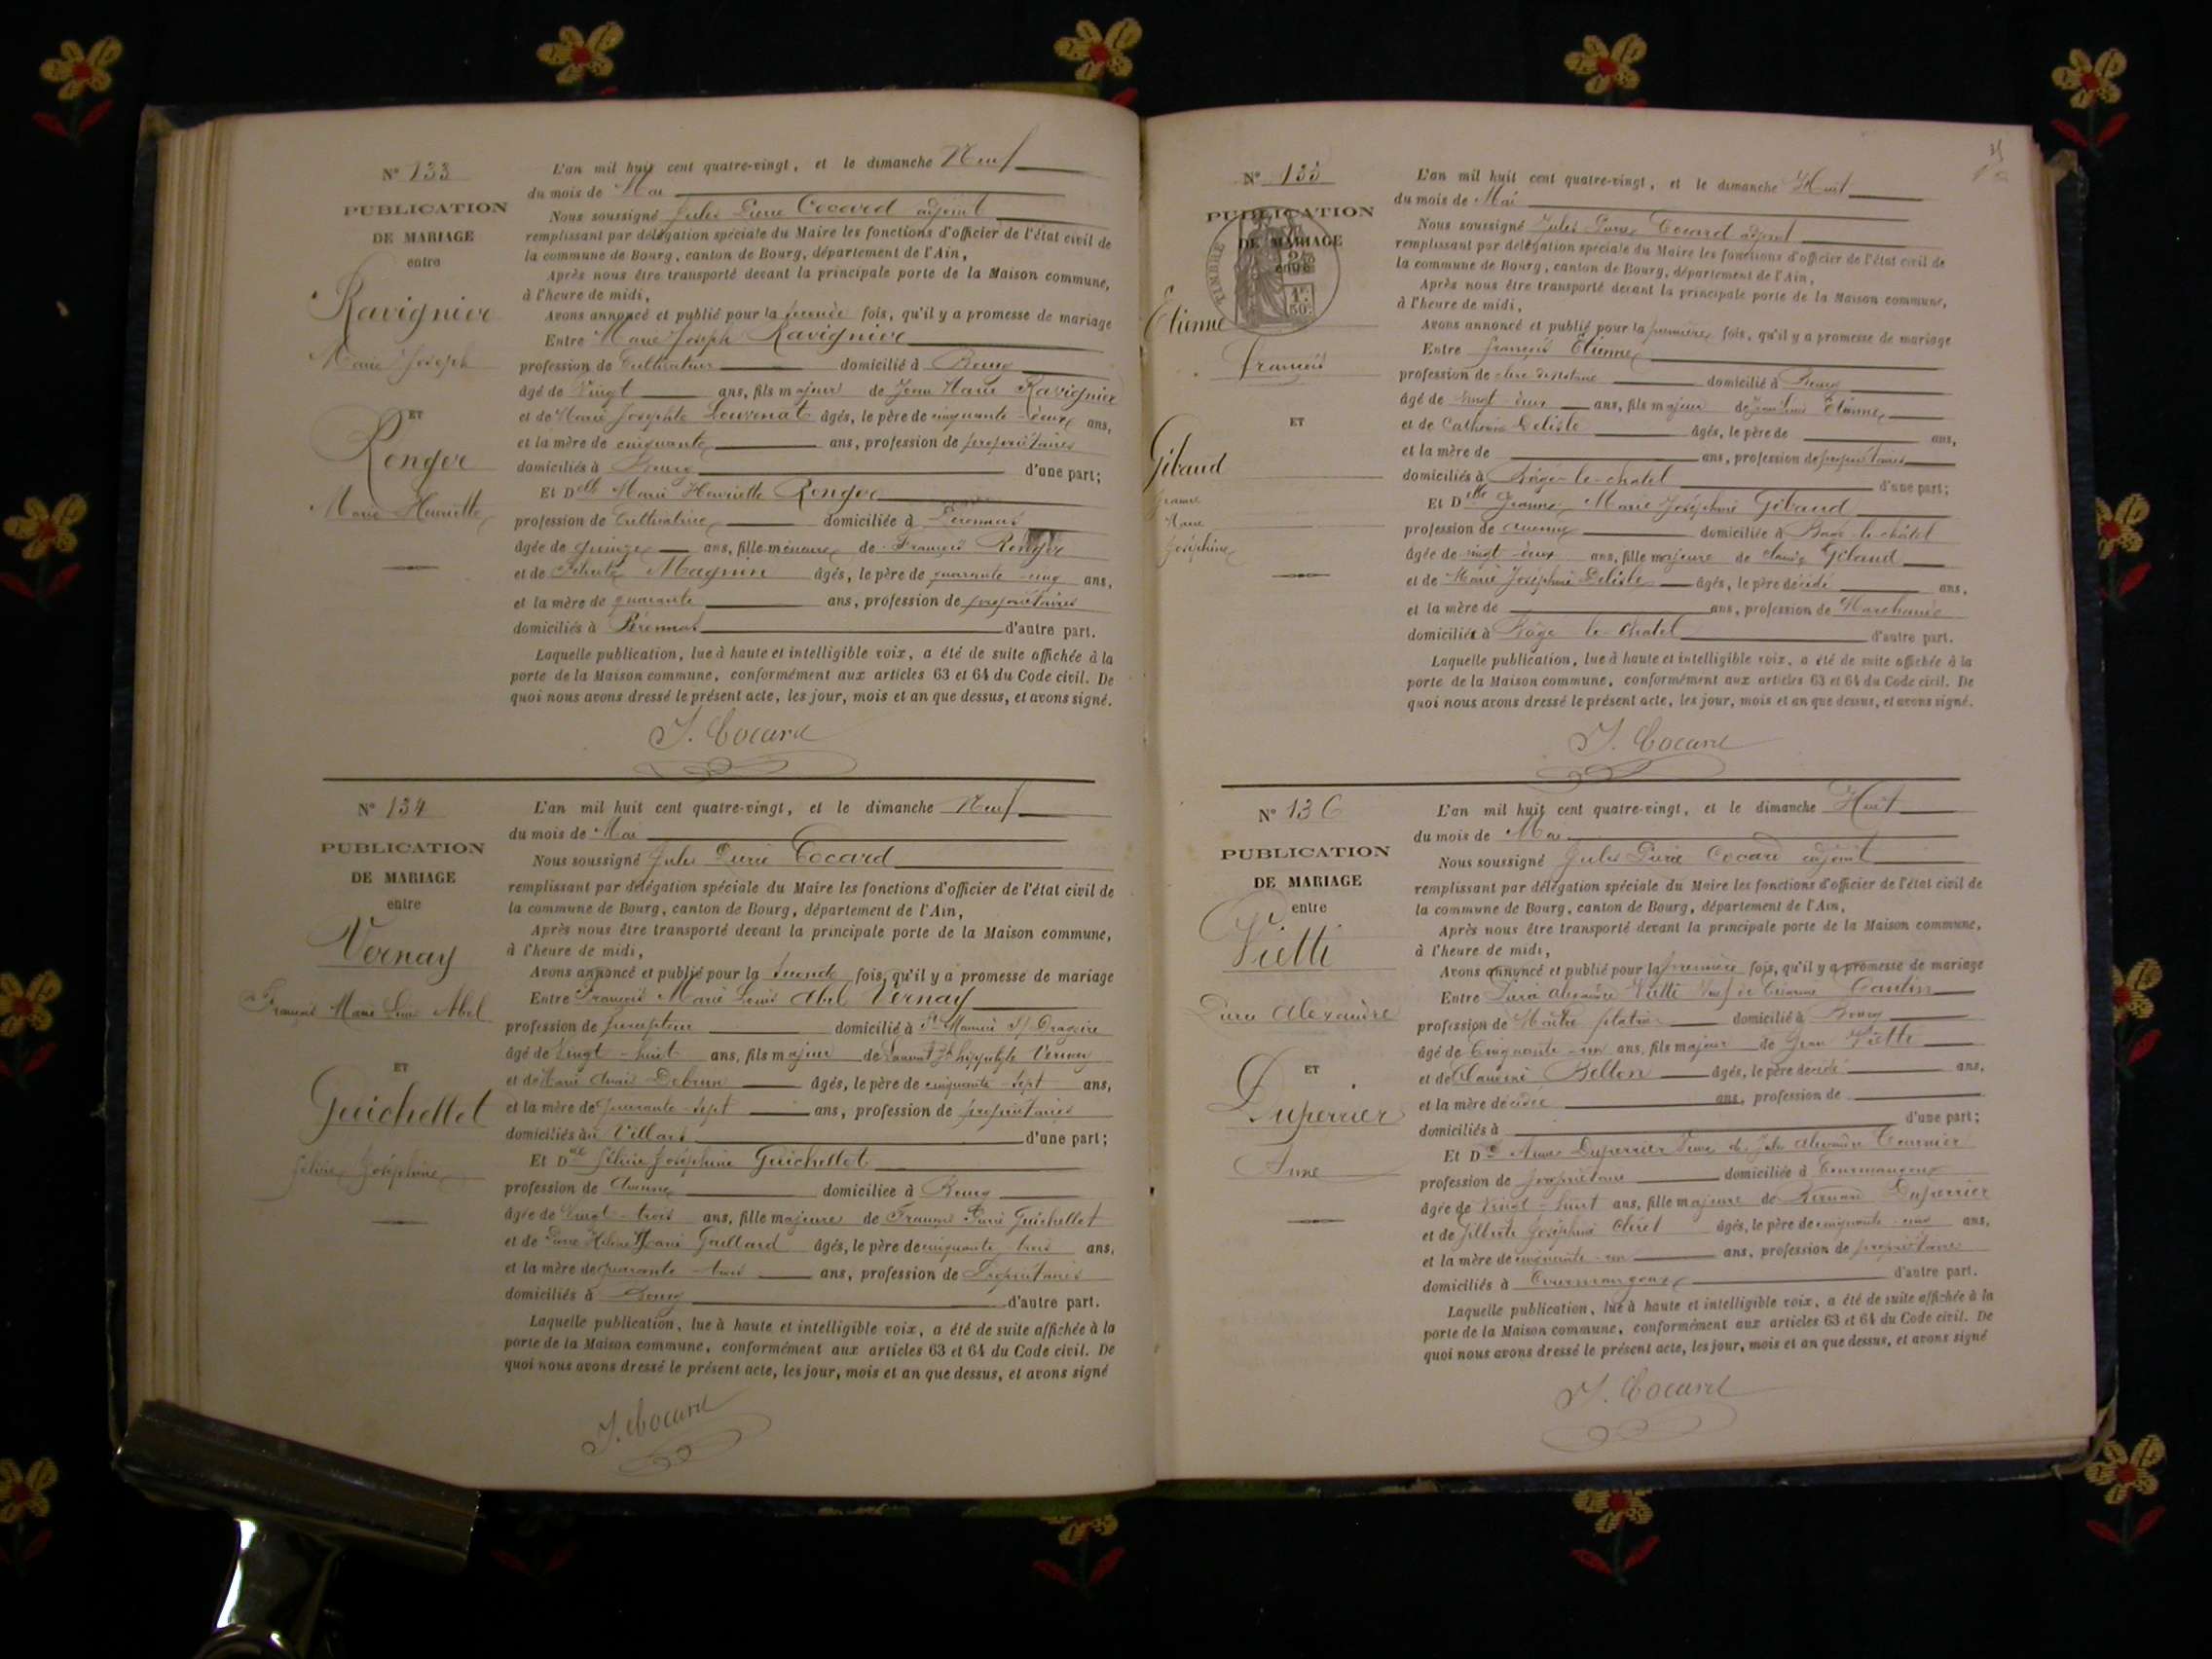 N° 133
PUBLICATION
DE MARIAGE
entre
Ravignier
Marie Joseph
ET
Renger
Marie Henriette
L'an mil huit cent quatre-vingt, et le dimanche Neuf
du mois de Mai
Nous soussigné Jules Pierre Cocard adjoint
remplissant par délégation spéciale du Maire les fonctions d'officier de l'état civil de
la commune de Bourg, canton de Bourg, département de l'Ain,
Après nous être transporté devant la principale porte de la Maison commune,
à l'heure de midi,
Avons annoncé et publié pour la seconde fois, qu'il y a promesse de mariage
Entre Marie Joseph Ravignier
profession de Cultivateur domicilié à Bourg
âgé de Vingt ans, fils majeur de Jean Marie Ravignier
et de Marie Josephte Louvenat âgés, le père de cinquante-deux ans,
et la mère de cinquante ans, profession de propriétaires
domiciliés à Bourg d'une part;
Et Delle Marie Henriette Renger
profession de Cultivatrice domiciliée à Péronnas
âgée de quinze ans, fille mineure de François Renger
et de Magnin âgés, le père de quarante-cinq ans,
et la mère de quarante ans, profession de propriétaires
domiciliés à Péronnas d'autre part.
Laquelle publication, lue à haute et intelligible voix, a été de suite affichée à la
porte de la Maison commune, conformément aux articles 63 et 64 du Code civil. De
quoi nous avons dressé le présent acte, les jour, mois et an que dessus, et avons signé.
J. Cocard
N° 134
PUBLICATION
DE MARIAGE
entre
Vernay
François Marie Louis Abel
ET
Guichellet
Félicie Joséphine
L'an mil huit cent quatre-vingt, et le dimanche Neuf
du mois de Mai
Nous soussigné Jules Pierre Cocard
remplissant par délégation spéciale du Maire les fonctions d'officier de l'état civil de
la commune de Bourg, canton de Bourg, département de l'Ain,
Après nous être transporté devant la principale porte de la Maison commune,
à l'heure de midi,
Avons annoncé et publié pour la seconde fois, qu'il y a promesse de mariage
Entre François Marie Louis Abel Vernay
profession de percepteur domicilié à St Maurice
âgé de Vingt-huit ans, fils majeur de Hippolyte Vernay
et de Marie Debrun âgés, le père de cinquante-sept ans,
et la mère de quarante-sept ans, profession de propriétaires
domiciliés au Villars d'une part;
Et Delle Félicie Joséphine Guichellet
profession de Aucune domiciliée à Bourg
âgée de Vingt-trois ans, fille majeure de François Marie Guichellet
et de Marie Gaillard âgés, le père de cinquante-trois ans,
et la mère de quarante-trois ans, profession de Propriétaires
domiciliés à Bourg d'autre part.
Laquelle publication, lue à haute et intelligible voix, a été de suite affichée à la
porte de la Maison commune, conformément aux articles 63 et 64 du Code civil. De
quoi nous avons dressé le présent acte, les jour, mois et an que dessus, et avons signé
J. Cocard
N° 135
PUBLICATION
DE MARIAGE
entre
TIMBRE
1F.
50c.
Etienne
François
ET
Gibaud
Jeanne
Marie
Joséphine
L'an mil huit cent quatre-vingt, et le dimanche Huit
du mois de Mai
Nous soussigné Jules Pierre Cocard adjoint
remplissant par délégation spéciale du Maire les fonctions d'officier de l'état civil de
la commune de Bourg, canton de Bourg, département de l'Ain,
Après nous être transporté devant la principale porte de la Maison commune,
à l'heure de midi,
Avons annoncé et publié pour la première fois, qu'il y a promesse de mariage
Entre François Etienne
profession de clerc de notaire domicilié à Bourg
âgé de vingt-deux ans, fils majeur de Etienne
et de Catherine Deliste âgés, le père de ans,
et la mère de ans, profession de propriétaires
domiciliés à Bâgé-le-châtel d'une part;
Et Delle Jeanne Marie Joséphine Gibaud
profession de aucune domiciliée à Bâgé-le-châtel
âgée de vingt-deux ans, fille majeure de Claude Gibaud
et de Marie Joséphine Deliste âgés, le père décédé ans,
et la mère de ans, profession de Marchande
domiciliée à Bâgé-le-Châtel d'autre part.
Laquelle publication, lue à haute et intelligible voix, a été de suite affichée à la
porte de la Maison commune, conformément aux articles 63 et 64 du Code civil. De
quoi nous avons dressé le présent acte, les jour, mois et an que dessus, et avons signé.
J. Cocard
N° 136
PUBLICATION
DE MARIAGE
entre
Vietti
Pierre Alexandre
ET
Duperrier
Anne
L'an mil huit cent quatre-vingt, et le dimanche Huit
du mois de Mai
Nous soussigné Jules Pierre Cocard adjoint
remplissant par délégation spéciale du Maire les fonctions d'officier de l'état civil de
la commune de Bourg, canton de Bourg, département de l'Ain,
Après nous être transporté devant la principale porte de la Maison commune,
à l'heure de midi,
Avons annoncé et publié pour la première fois, qu'il y a promesse de mariage
Entre Pierre Alexandre Vietti Veuf de Cantin
profession de Maître plâtrier domicilié à Bourg
âgé de Cinquante-un ans, fils majeur de Jean Vietti
et de Bellon âgés, le père décédé ans,
et la mère décédée ans, profession de
domiciliés à d'une part;
Et De Anne Duperrier Veuve de Jules Alexandre Tournier
profession de propriétaire domiciliée à Courmangoux
âgée de Vingt-huit ans, fille majeure de Bernard Duperrier
et de Joséphine Chivet âgés, le père de cinquante-cinq ans,
et la mère de cinquante-un ans, profession de propriétaires
domiciliés à Courmangoux d'autre part.
Laquelle publication, lue à haute et intelligible voix, a été de suite affichée à la
porte de la Maison commune, conformément aux articles 63 et 64 du Code civil. De
quoi nous avons dressé le présent acte, les jour, mois et an que dessus, et avons signé
J. Cocard